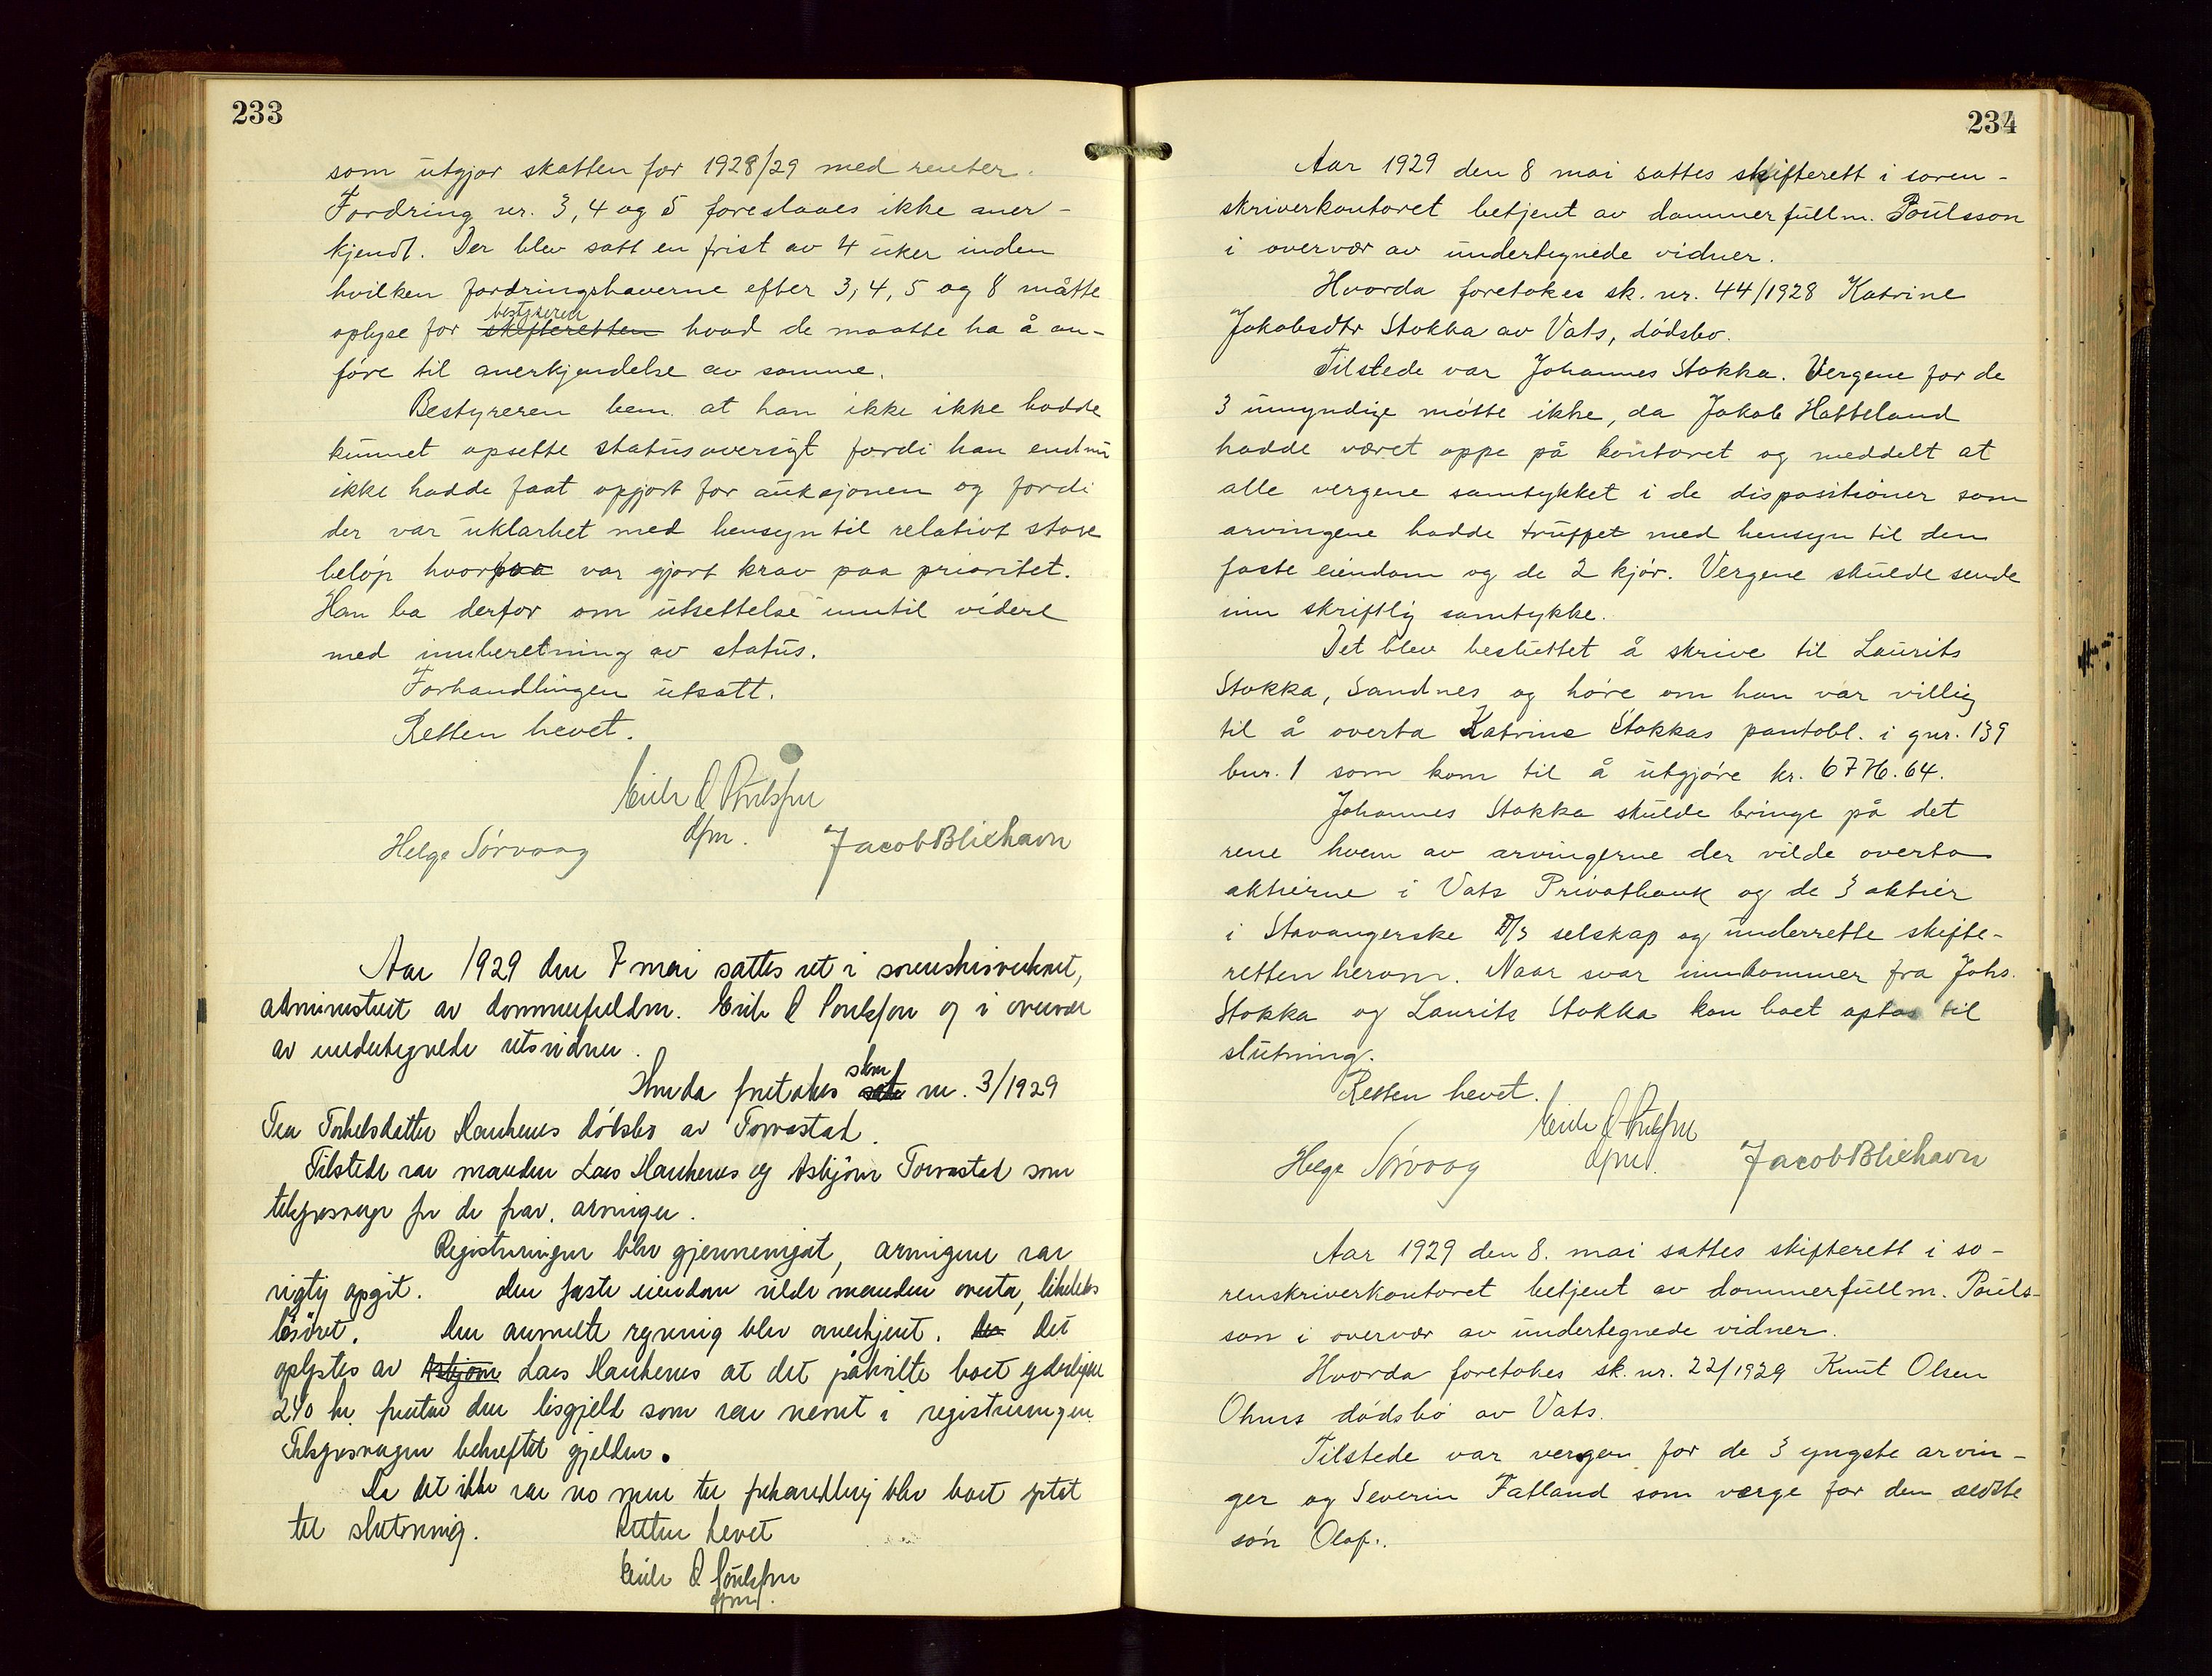 233
som utgjør skatten for 1928/29 med renter.
Fordring nr. 3, 4 og 5 foreslaaes ikke aner-
kjendt. Der blev satt en frist av 4 uker inden
hvilken fordringshaverne efter 3, 4, 5 og 8 måtte
bestyreren
oplyse for skifteretten hvad de maatte ha å an-
føre til anerkjendelse av samme.
Bestyreren bem. at han ikke ikke hadde
kunnet opsette statusoversigt fordi han endnu
ikke hadde faat opgjort for auksjonen og fordi
der var uklarhet med hensyn til relativt store
beløp hvorpaa var gjort krav paa prioritet.
Han ba derfor om utsettelse inntil videre
med innberetning av status.
Forhandlingen utsatt.
Retten hevet.
Erik Q Poulsson
dfm.
Helge Sørvaag Jacob Blixhavn
Aar 1929 den 7 mai sattes ret i sorenskriverkont,
administrert av dommerfuldm. Erik Q Poulsson og i overvær
av undertegnede retsvidner.
skm
Hvorda foretokes nr. 3/1929
Tea Torkelsdatter Haukenes dödsbo av Torvastad.
Tilstede var manden Lars Haukenes og Asbjörn Torvastad som
tilsynsverge for de frav. arvinger.
Registreringen blev gjennemgåt, arvingene var
rigtig opgit. Den faste eiendom vilde manden overta, likeledes
lösöret. Den anmeldte regning blev anerkjent. Der Det
oplystes av Asbjörn Lars Haukenes at det påhvilte boet yderligere
240 kr. foruten den lösgjeld som var nevnt i registreringen
Tilsynsvergen bekreftet gjelden.
Da det ikke var no mere til forhandling blev boet optat
til slutning. Retten hevet
Erik Q Poulsson
dfm.
234
Aar 1929 den 8 mai sattes skifterett i soren-
skriverkontoret betjent av dommerfullm. Poulsson
i overvær av undertegnede vidner.
Hvorda foretokes sk. nr. 44/1928 Katrine
Jakobsdtr Stokka av Vats, dödsbo.
Tilstede var Johannes Stokka. Vergene for de
3 umyndige mötte ikke, da Jakob Hatteland
hadde været oppe på kontoret og meddelt at
alle vergene samtykket i de dispositioner som
arvingene hadde truffet med hensyn til den
faste eiendom og de 2 kjør. Vergene skulde sende
inn skriftlig samtykke.
Det blev besluttet å skrive til Laurits
Stokka, Sandnes og høre om han var villig
til å overta Katrine Stokkas pantobl. i gnr. 139
bnr. 1 som kom til å utgjøre kr. 6776.64.
Johannes Stokka skulde bringe på det
rene hvem av arvingerne der vilde overta
aktierne i Vats Privatbank og de 3 aktier
i Stavangerske D/s selskap og underrette skifte-
retten herom. Naar svar innkommer fra Johs.
Stokka og Laurits Stokka kan boet optas til
slutning.
Retten hevet.
Erik Q Poulsson
dfm.
Helge Sørvaag Jacob Blixhavn
Aar 1929 den 8. mai sattes skifterett i so-
renskriverkontoret betjent av dommerfullm. Pouls-
son i overvær av undertegnede vidner.
Hvorda foretokes sk. nr. 22/1929 Knut Olsen
Ohms dödsbo av Vats.
Tilstede var vergen for de 3 yngste arvin-
ger og Severin Fatland som verge for den ældste
søn Olaf.